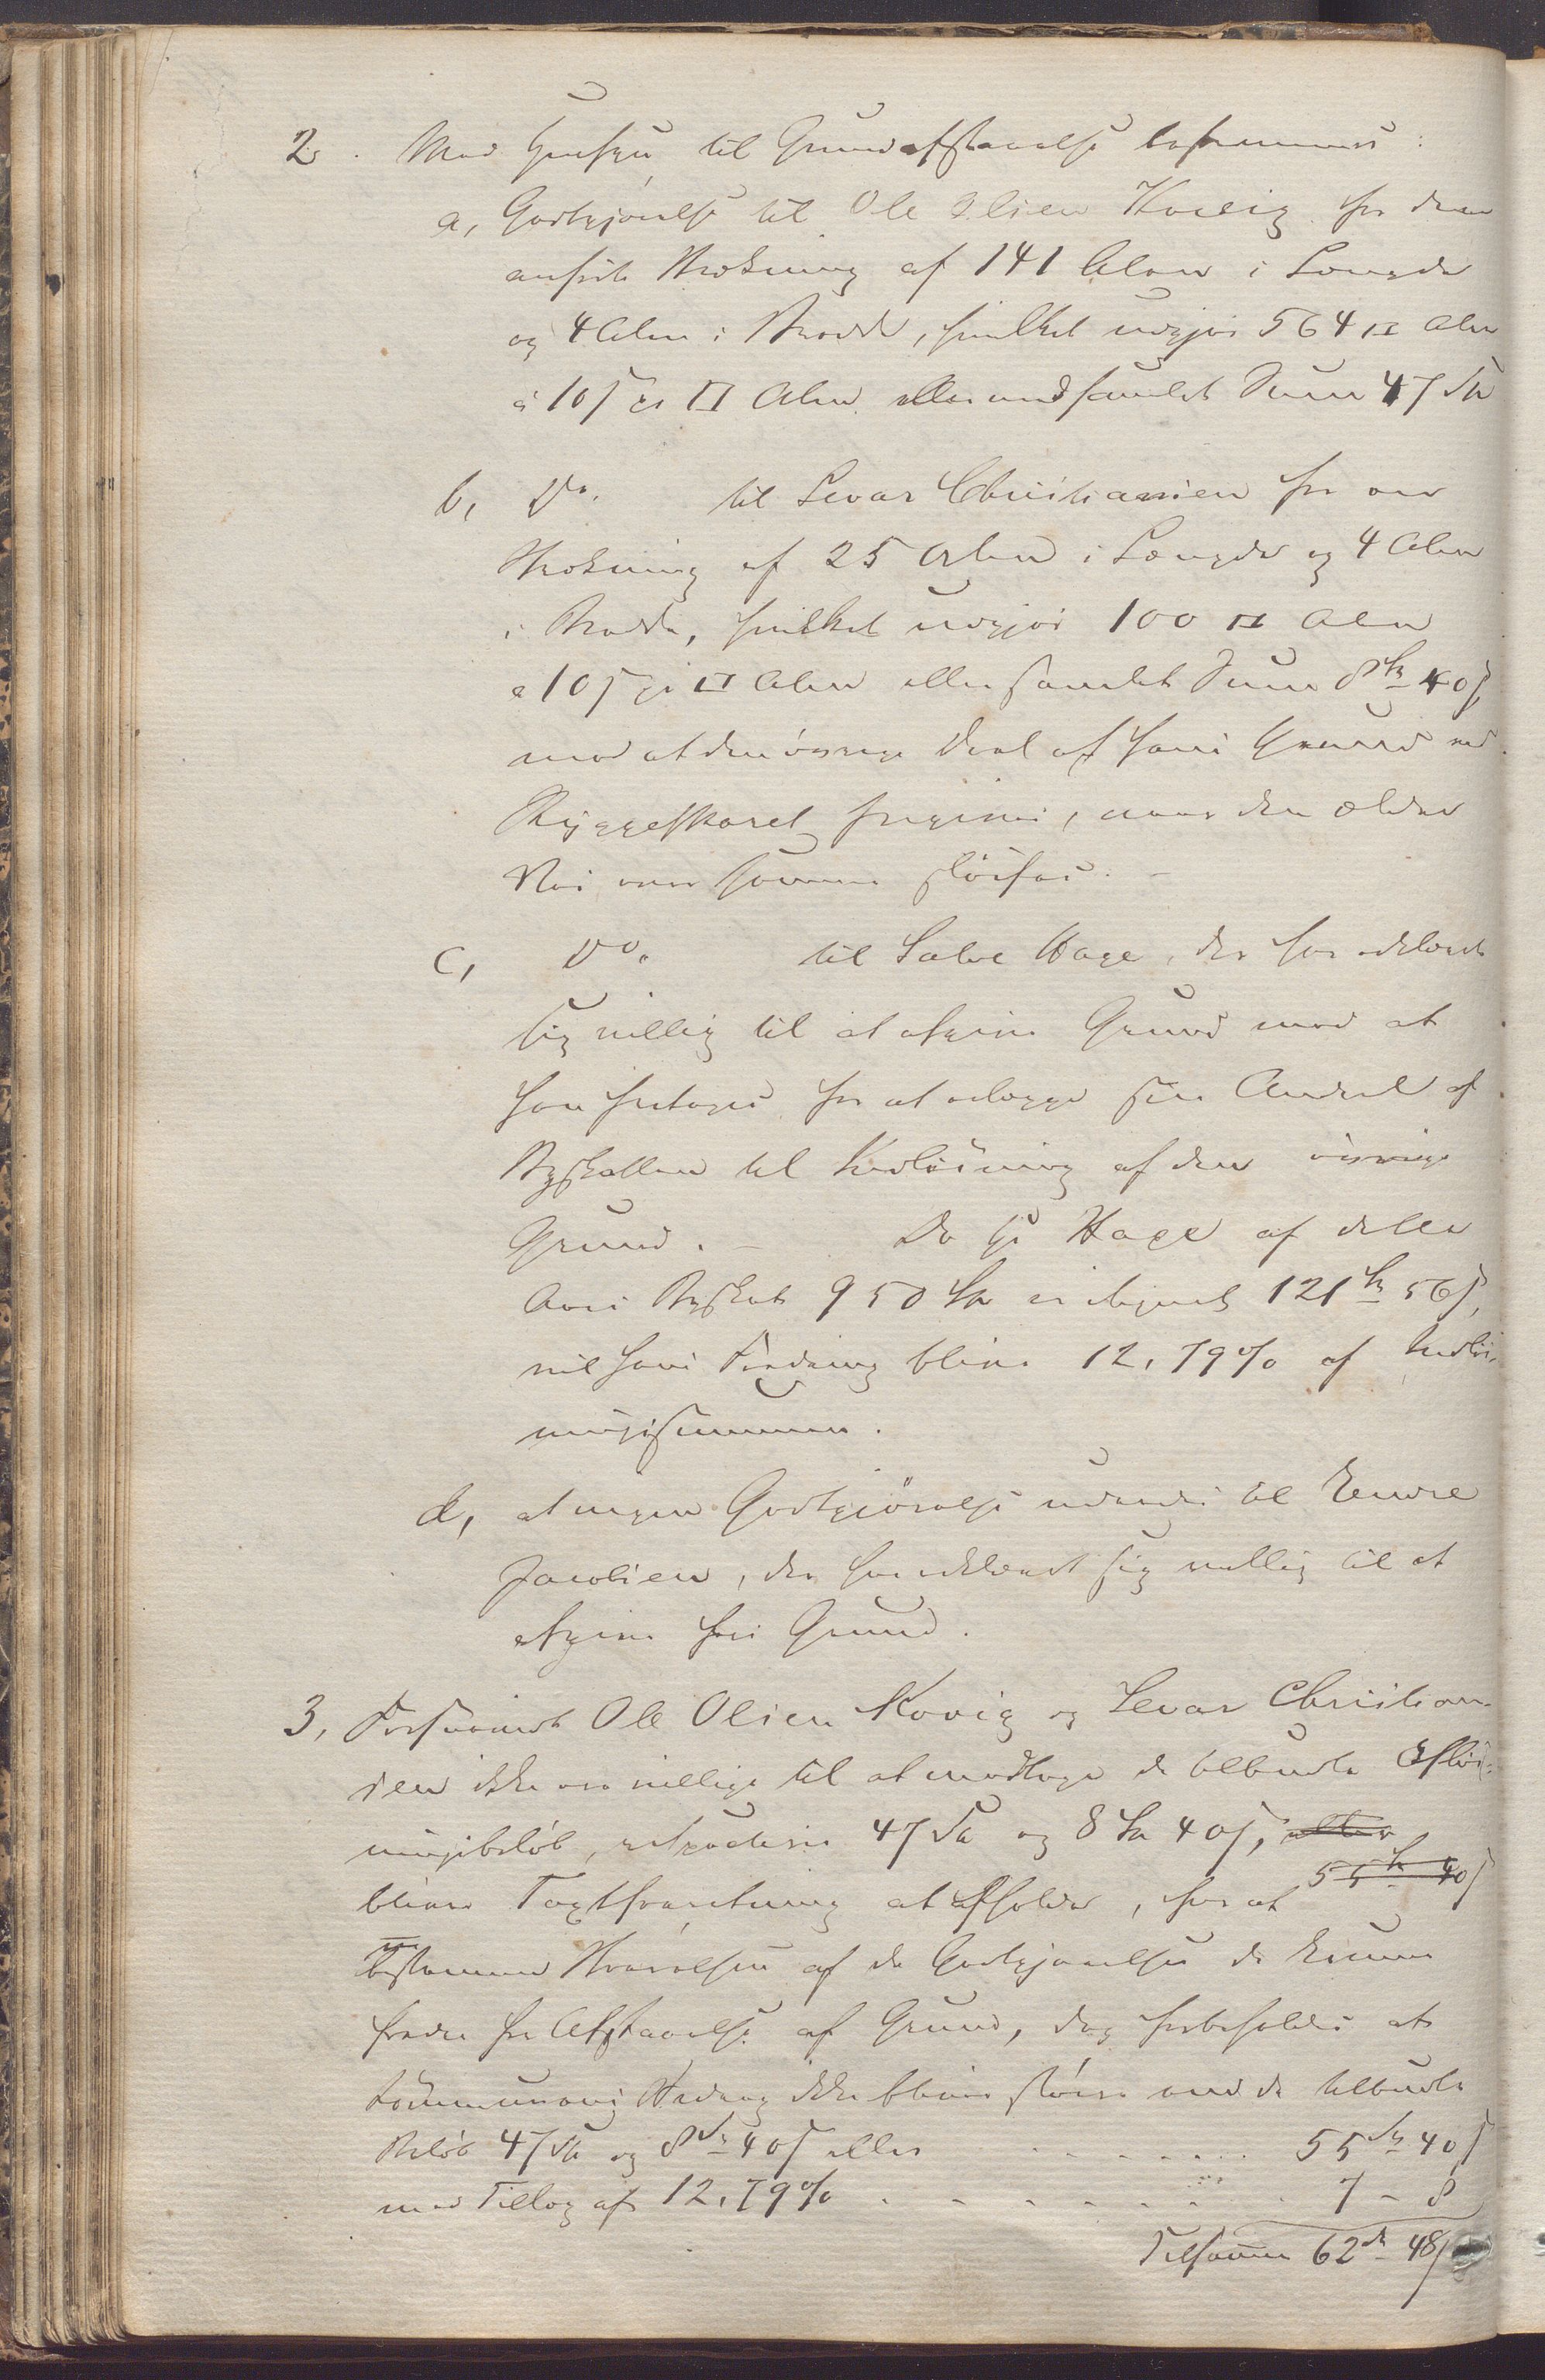 2. Med Hensyn til Grundafstaaelse bestemmes:
a, Godtgjörelse til Ole Olsen Kovig for den
anförte Strækning af 141 Alen i Længde
og 4 Alen i Bredde, hvilket udgjör 564 □ Alen
à 10 s pr □ Alen eller med samlet Sum 47 Sp
b, Do. til Sevar Christiansen for en
Strækning af 25 Alen i Længde og 4 Alen
i Bredde, hvilket udgjör 100 □ Alen
à 10 s pr □ Alen eller samlet Sum 8 Sp 40 s,
mod at den övrige Deel af hans Grund ved
Ryggeskaret frigives, naar den ældre
Vei over samme slöifes. -
c, Do. til Salve Hage, der har erklæret
sig villig til at afgive Grund mod at
han fritages for at erlægge sin Andeel af
Byskatten til Indlösning af den övrige
Grund. - Da Hr Hage af dette
Aars Byskat 950 Sp er ilignet 121 Sp 56 s,
vil hans Fordring blive 12,79 % af Indlös-
ningssummen.
d, at ingen Godtgjörelse udredes til Endre
Jacobsen, der har erklæret sig villig til at
afgive fri Grund.
3, Forsaavidt Ole Olsen Kovig og Sevar Christian-
sen ikke ere villige til at modtage de tilbudte Aflös-
ningsbelöb, respective 47 Sp og 8 Sp 40 s, eller
55 Sp 40 s
bliver Taxtforretning at afholde, for at
bestemme Störrelsen af de Godtgjörelser de kunne
fordre for Afstaaelse af Grund, dog forbeholdes at
Communens Udlæg ikke bliver större end de tilbudte
Belöb 47 Sp og 8 Sp 40 s eller . . . . . . 55 Sp 40 s
med Tillæg af 12,79 % . . . . . . . . 7 - 8
Tilsammen 62 Sp 48 s